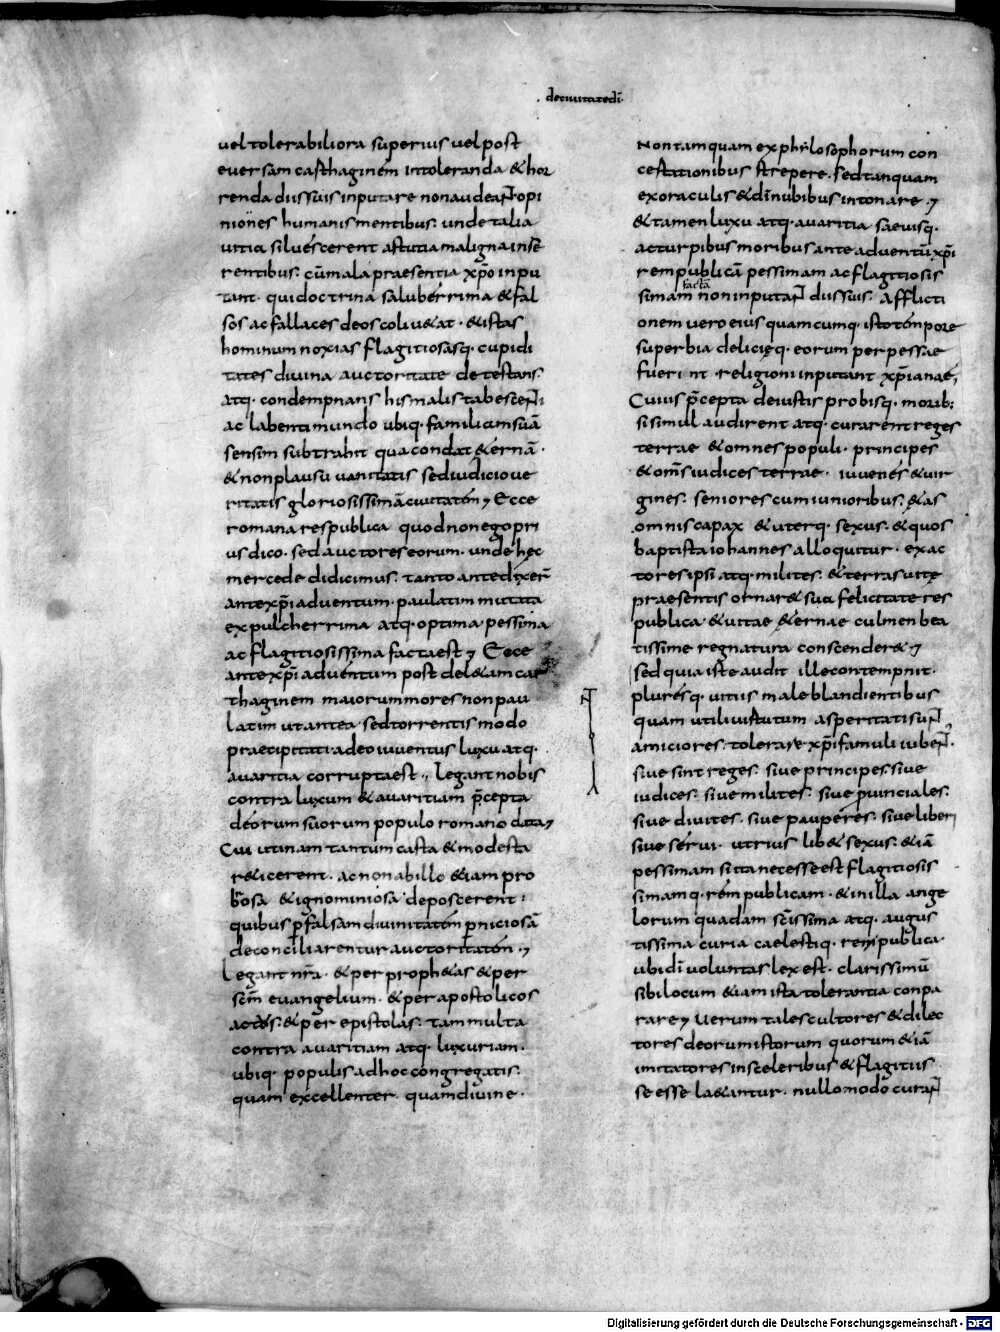 deciuitatedi
uel tolerabiliora superius uel post
euersam casthaginem intoleranda & hor
renda diis suis inputare non audeant opi
niones humanis mentibus. unde talia
uitia siluescerent astutia maligna inse
rentibus. cum mala praesentia xpo inpu
tant. qui doctrina saluberrima & fal
sos ac fallaces deos coli u&at. & istas
hominum noxias flagitiosasq. cupidi
tates diuina auctoritate detestans.
atq. condempnans his malis tabescenti
ac labenti mundo ubiq. familiam suā
sensim subtrahit qua condat &ernā.
& non plausu uanitatis sed iudicio ue
ritatis gloriosissimā ciuitatem; Ecce
romana respublica quod non ego pri
us dico. sed auctores eorum. unde hęc
mercede didicimus. tanto ante dixer̄
ante xpi aduentum. paulatim mutata
ex pulcherrima atq. optima. pessima
ac flagitiosissima facta est; Ecce
ante xpi aduentum post del&am car
thaginem maiorum mores non pau
latim ut antea. sed torrentis modo
praecipitati adeo iuuentus luxu atq.
auaritia corrupta est; legant nobis
contra luxum & auaritiam p̄cepta
deorum suorum populo romano data;
Cui utinam tantum casta & modesta
r&icerent. ac non ab illo &iam pro
brosa & ignominiosa deposcerent.
quibus p falsam diuinitatem pniciosā
deconciliarentur auctoritatem;
Legant nr̄a. & per proph&as & per
scm̄ euangelium. & per apostolicos
actos. & per epistolas. tam multa
contra auaritiam atq. luxuriam.
ubiq. populis ad hoc congregatis.
quam excellenter. quam diuine.
Non tamquam ex philosophorum con
cestationibus strepere. sed tanquam
ex oraculis & di nubibus intonare;
& tamen luxu atq. auaritia saeuisq.
ac turpibus moribus ante aduentū xpi
rem publicā pessimam ac flagitiosis
factā
simam non inputant diis suis. Afflicti
onem uero eius quamcumq. isto tempore
superbia delicięq. eorum perpessae
fuerint. religioni inputant xpianae;
Cuius p̄cepta de iustis probisq. morib;
si simul audirent atq. curarent reges
terrae & omnes populi. principes
& oms̄ iudices terrae. iuuenes & uir
gines. seniores cum iunioribus. & as
omnis capax & uterq. sexus. & quos
baptista iohannes alloquitur. exac
tores ipsi atq. milites. & terras uitę
praesentis ornar& sua felicitate res
publica & uitae &ernae culmen bea
tissime regnatura conscender&;
sed quia iste audit ille contempnit.
pluresq. uitiis male blandientibus
quam utili uirtutum asperitati sunt
amiciores. tolerare xpi famuli iubent.
siue sint reges. siue principes. siue
iudices. siue milites. siue puinciales.
siue diuites. siue pauperes. siue liberi
siue serui. utrius lib& sexus. &iā
pessimam si ita necesse est flagitiosis
simamq. rem publicam. & in illa ange
lorum quadam scissima atq. augus
tissima curia caelestiq. rem publica.
ubi di uoluntas lex est. clarissimū
sibi locum &iam ista tolerantia conpa
rare; Uerum tales cultores & dilec
tores deorum istorum quorum &iā
imitatores in sceleribus & flagitiis
se esse la&antur. nullo modo curant
Digitalisierung gefördert durch die Deutsche Forschungsgemeinschaft - DFG